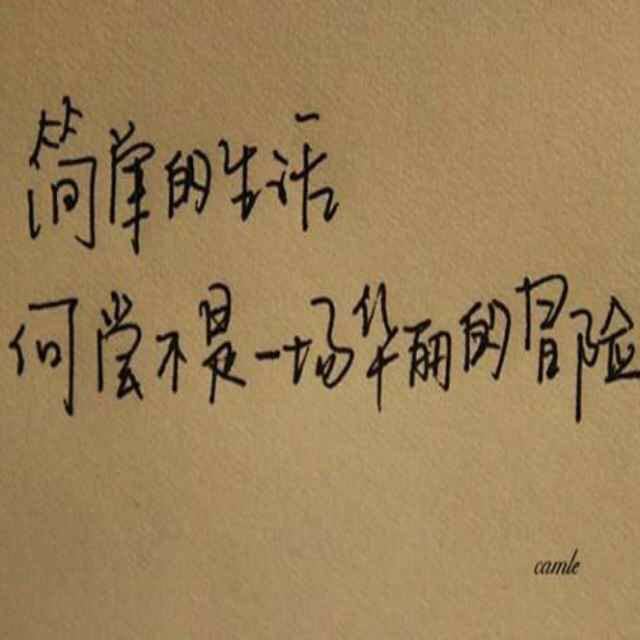 简单的生活
何尝不是一场华丽的冒险
camle